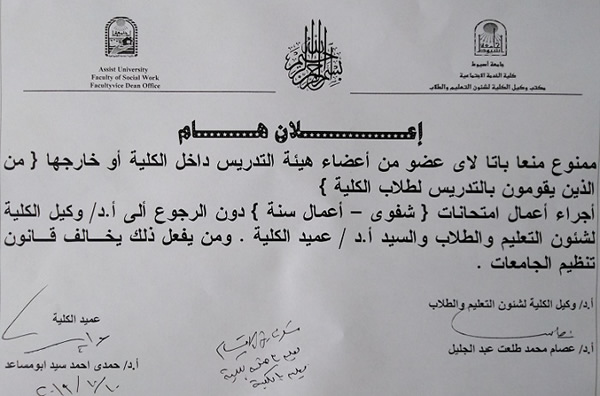 Assist University
Faculty of Social Work
Facultyvice Dean Office
جامعة أسيوط
كلية الخدمة الاجتماعية
مكتب وكيل الكلية لشئون التعليم والطلاب
إعـــلان هـــام
ممنوع منعا باتا لاى عضو من أعضاء هيئة التدريس داخل الكلية أو خارجها { من
الذين يقومون بالتدريس لطلاب الكلية }
أجراء أعمال امتحانات { شفوى – أعمال سنة } دون الرجوع ألى أ.د/ وكيل الكلية
لشئون التعليم والطلاب والسيد أ.د / عميد الكلية . ومن يفعل ذلك يخالف قانون
تنظيم الجامعات .
أ.د/ وكيل الكلية لشئون التعليم والطلاب
عميد الكلية
أ.د/ عصام محمد طلعت عبد الجليل
أ.د/ حمدى احمد سيد ابومساعد
٢٠١٩/١٠/١٠